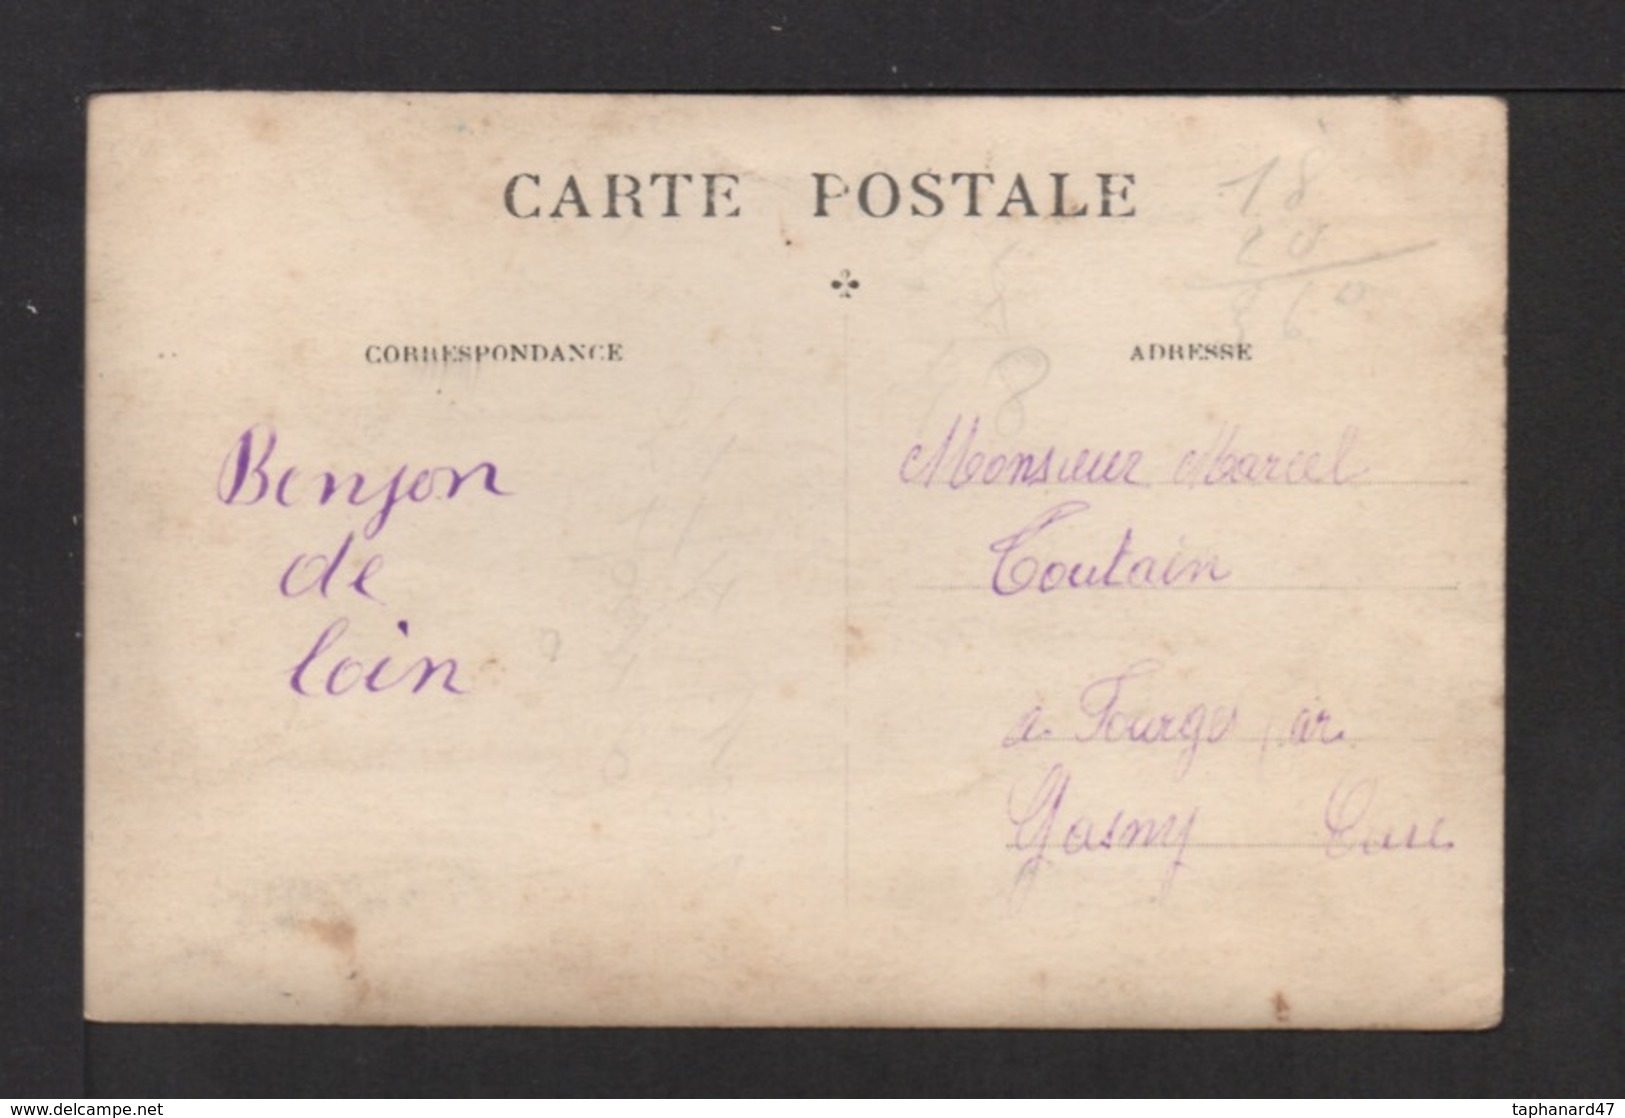 CARTE POSTALE
CORRESPONDANCE
ADRESSE
Bonjon
de
loin
Monsieur Marcel
Toutain
a Fourges par
Gasny Eure
18
20
360
8
www.delcampe.net
taphanard47